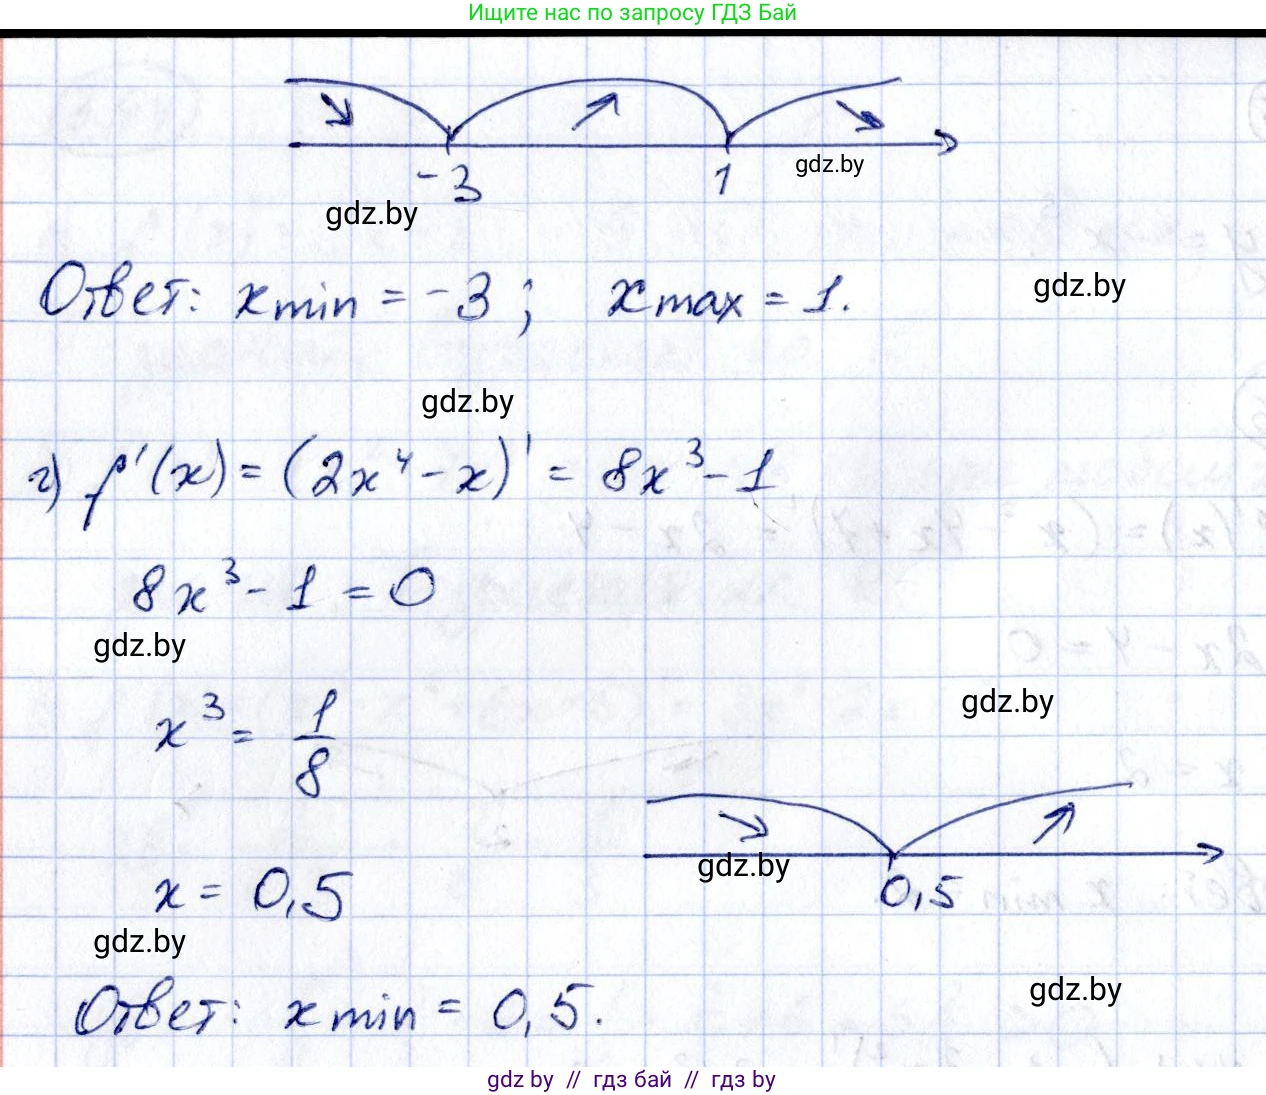 Ищите нас по запросу ГДЗ Бай
-3 1 gdz.by
gdz.by
Ответ: xmin = -3; xmax = 1.
gdz.by
gdz.by
г) f'(x) = (2x⁴ - x)' = 8x³ - 1
8x³ - 1 = 0
gdz.by
gdz.by
x³ = 1/8
gdz.by
x = 0,5
0,5
gdz.by
gdz.by
Ответ: xmin = 0,5.
gdz by // гдз бай // гдз by